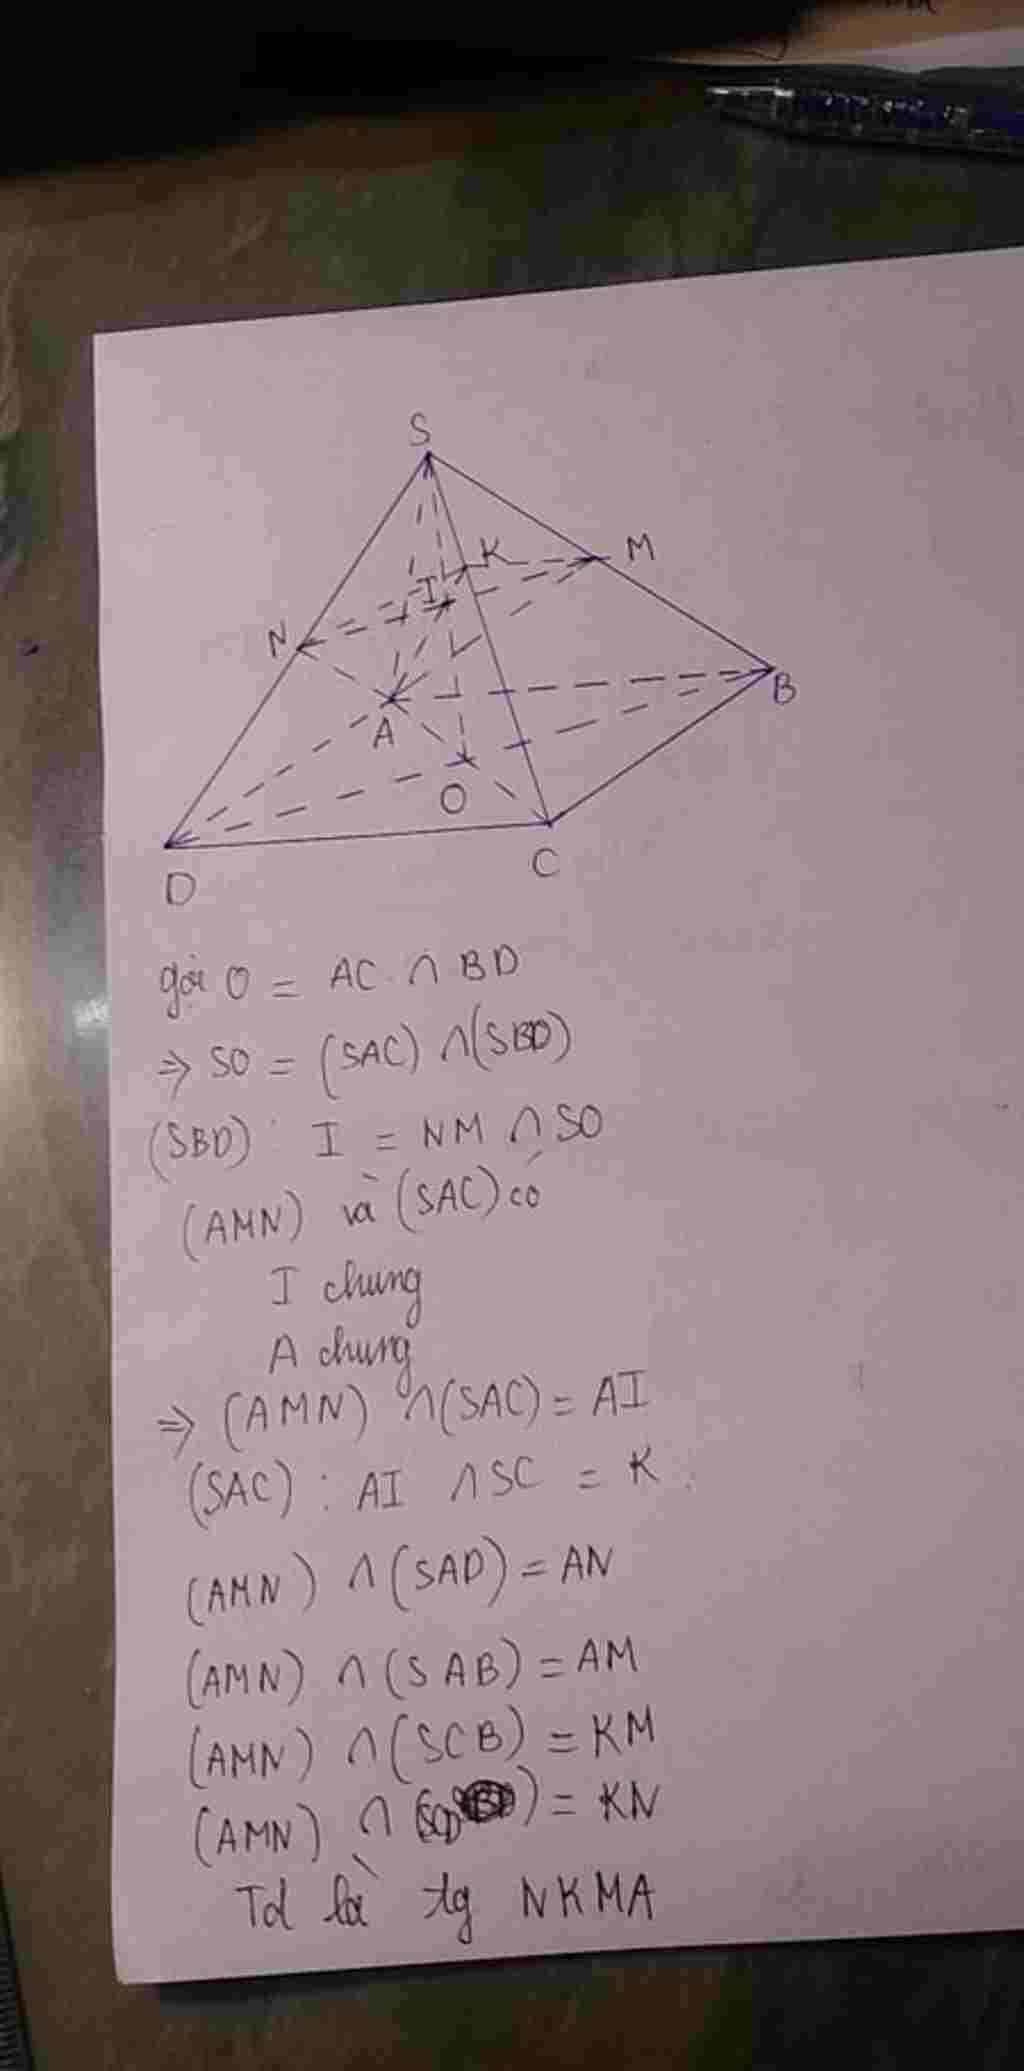 S
K
M
I
N
A
B
O
D
C
gọi O = AC ∩ BD
⇒ SO = (SAC) ∩ (SBD)
(SBD): I = NM ∩ SO
(AMN) và (SAC) có
I chung
A chung
⇒ (AMN) ∩ (SAC) = AI
(SAC): AI ∩ SC = K.
(AMN) ∩ (SAD) = AN
(AMN) ∩ (SAB) = AM
(AMN) ∩ (SCB) = KM
(AMN) ∩ (SCD) = KN
Td là tg NKMA